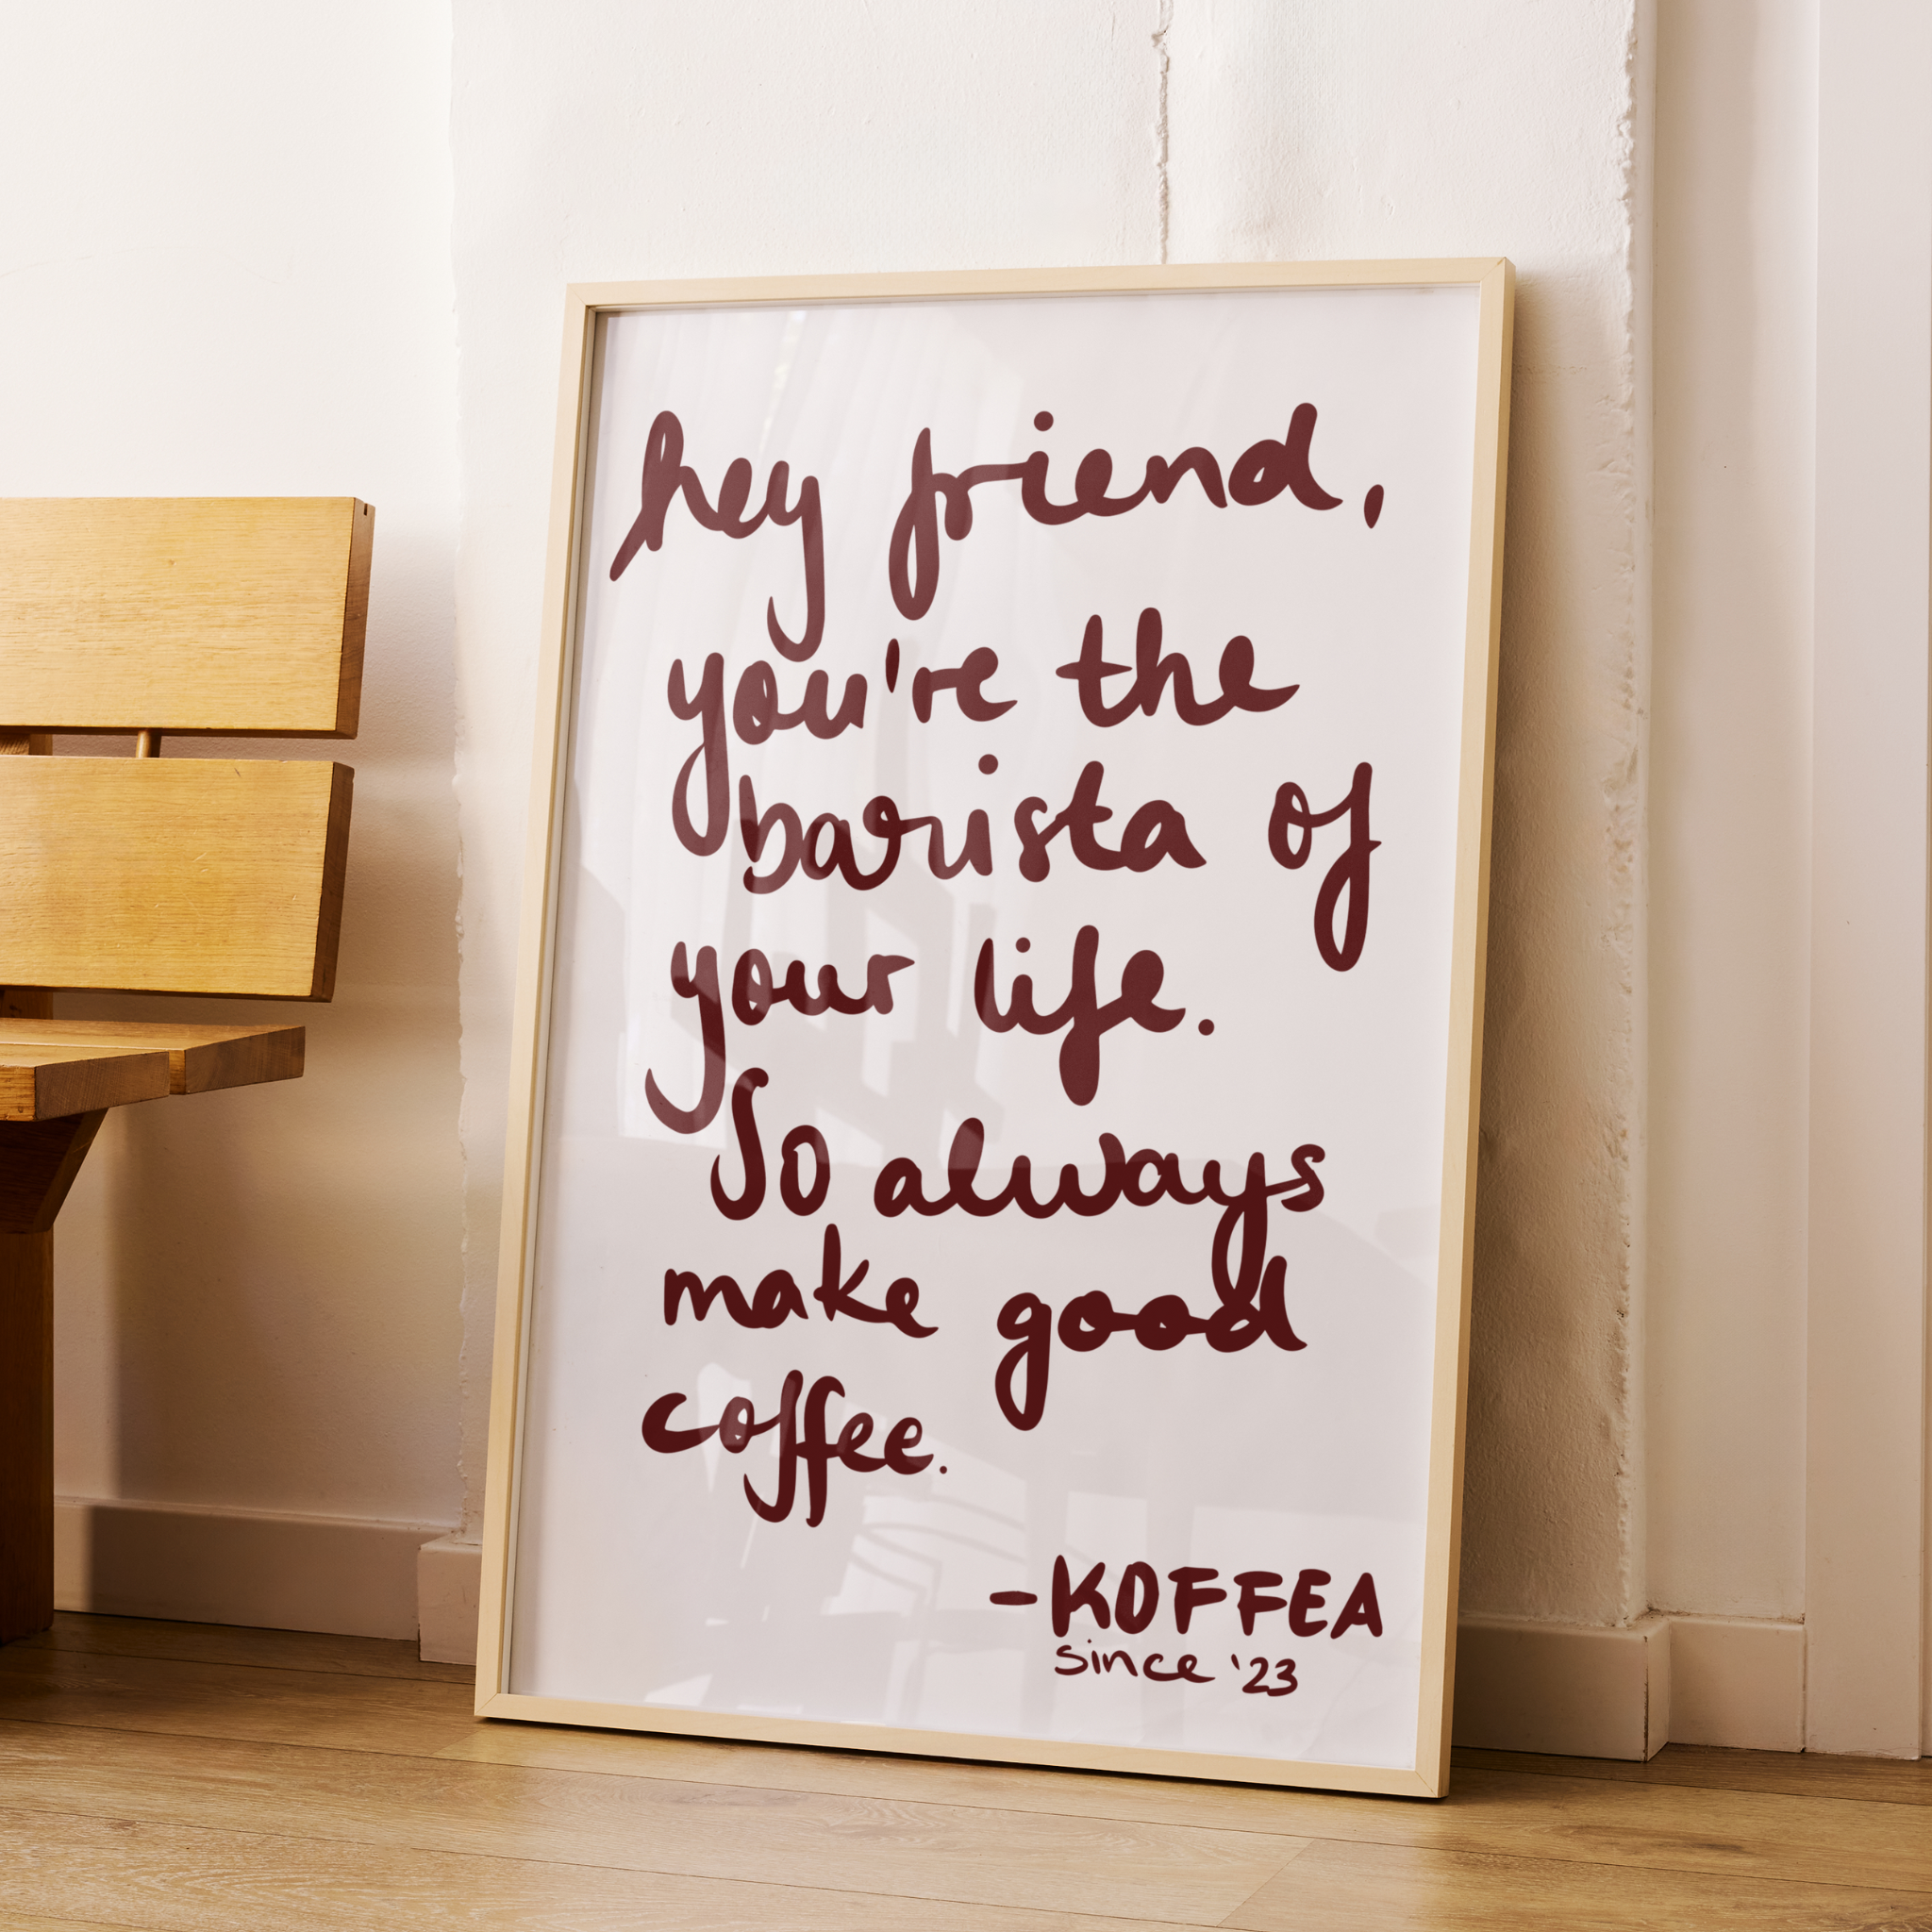 hey friend,
you're the
barista of
your life.
So always
make good
coffee.
-KOFFEA
since '23